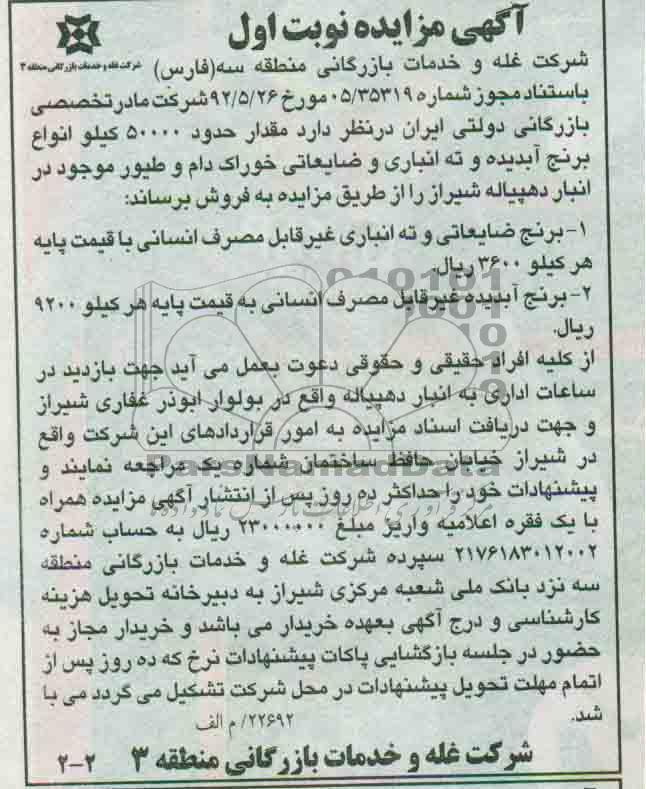 آگهی مزایده نوبت اول
شرکت غله و خدمات بازرگانی منطقه ۳
شرکت غله و خدمات بازرگانی منطقه سه(فارس)
باستناد مجوز شماره ۰۵/۳۵۳۱۹ مورخ ۹۲/۵/۲۶ شرکت مادر تخصصی
بازرگانی دولتی ایران درنظر دارد مقدار حدود ۵۰۰۰۰ کیلو انواع
برنج آبدیده و ته انباری و ضایعاتی خوراک دام و طیور موجود در
انبار دهپیاله شیراز را از طریق مزایده به فروش برساند:
۱-برنج ضایعاتی و ته انباری غیرقابل مصرف انسانی با قیمت پایه
هر کیلو ۳۶۰۰ ریال.
۲- برنج آبدیده غیرقابل مصرف انسانی به قیمت پایه هر کیلو ۹۲۰۰
ریال.
از کلیه افراد حقیقی و حقوقی دعوت بعمل می آید جهت بازدید در
ساعات اداری به انبار دهپیاله واقع در بولوار ابوذر غفاری شیراز
و جهت دریافت اسناد مزایده به امور قراردادهای این شرکت واقع
در شیراز خیابان حافظ ساختمان شماره یک مراجعه نمایند و
پیشنهادات خود را حداکثر ده روز پس از انتشار آگهی مزایده همراه
با یک فقره اعلامیه واریز مبلغ ۲۳۰۰۰۰۰۰ ریال به حساب شماره
۲۱۷۶۱۸۳۰۱۲۰۰۲ سپرده شرکت غله و خدمات بازرگانی منطقه
سه نزد بانک ملی شعبه مرکزی شیراز به دبیرخانه تحویل هزینه
کارشناسی و درج آگهی بعهده خریدار می باشد و خریدار مجاز به
حضور در جلسه بازگشایی پاکات پیشنهادات نرخ که ده روز پس از
اتمام مهلت تحویل پیشنهادات در محل شرکت تشکیل می گردد می با
شد.
۲۲۶۹۲/ م الف
شرکت غله و خدمات بازرگانی منطقه ۳
۲-۲
ParsNamadData